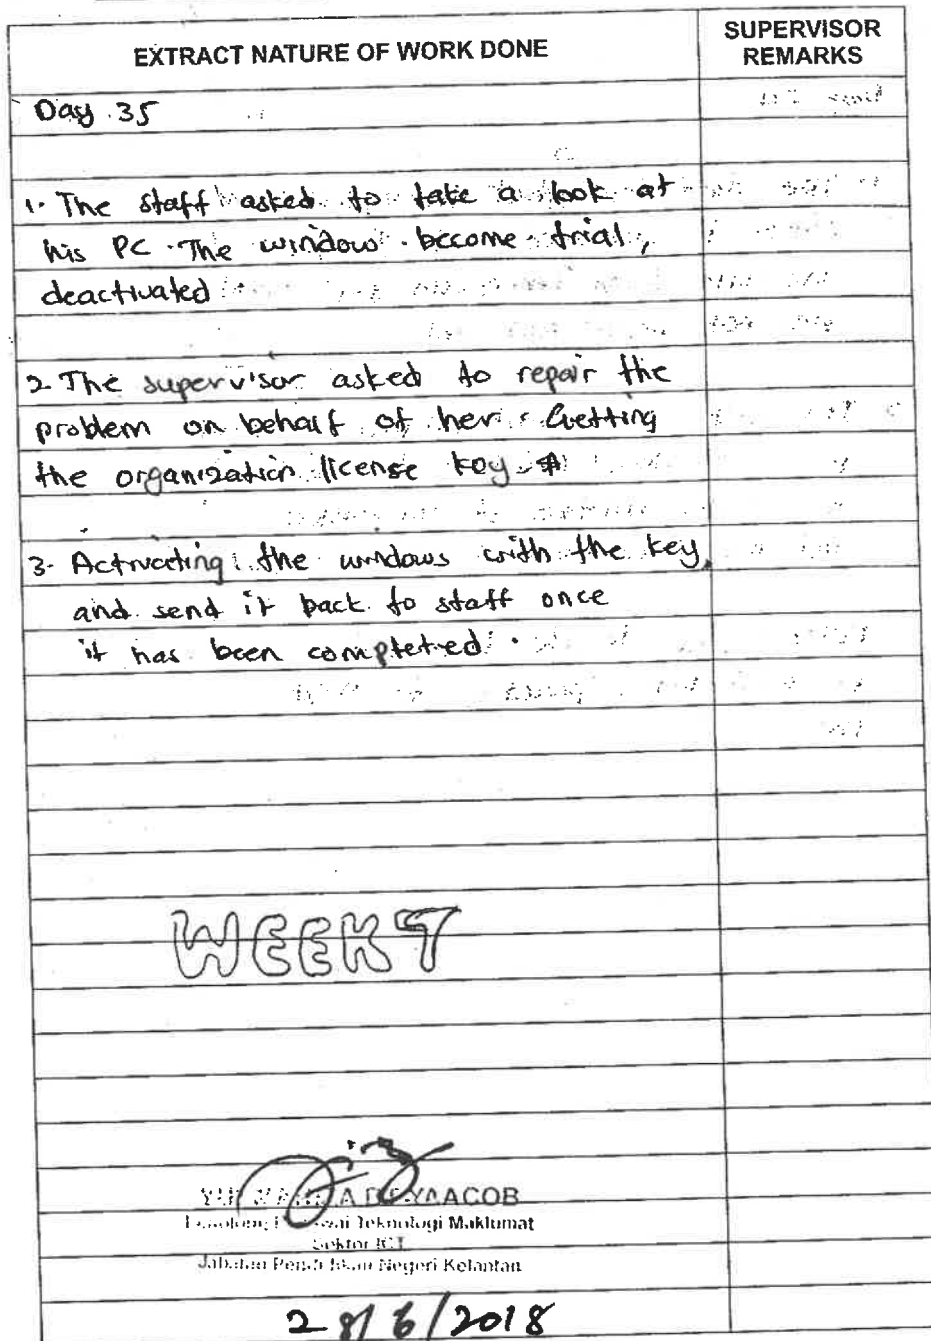 EXTRACT NATURE OF WORK DONE
SUPERVISOR
REMARKS
Day 35
1. The staff asked to take a look at
his PC. The window become trial,
deactivated
2. The supervisor asked to repair the
problem on behalf of her. Getting
the organization license key
3. Activating the windows with the key,
and send it back to staff once
it has been completed.
WEEK 7
YAACOB
Teknologi Maklumat
Sektor ICT
Jabatan Pendidikan Negeri Kelantan
28/6/2018